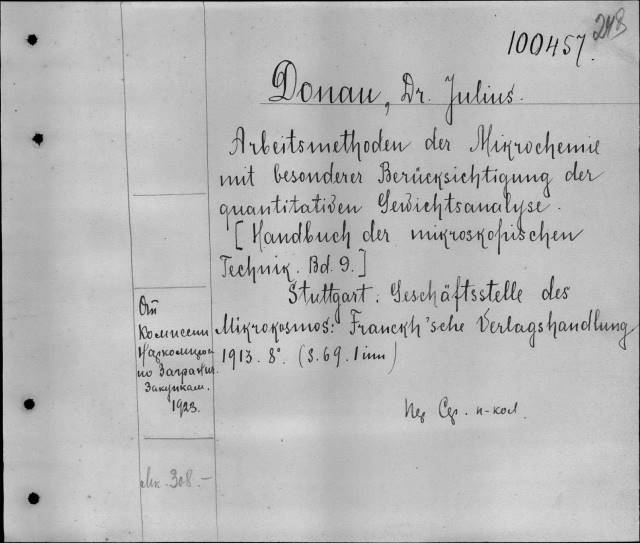 248
100457.
Donau, Dr. Julius.
Arbeitsmethoden der Mikrochemie
mit besonderer Berücksichtigung der
quantitativen Gewichtsanalyse.
[Handbuch der mikroskopischen
Technik. Bd. 9.]
Stuttgart. Geschäftsstelle des
Mikrokosmos: Franckh'sche Verlagshandlung
1913. 8°. (S. 69. 1 inn)
От
Комиссии
по Заграни.
Закупкам.
1923.
308.-